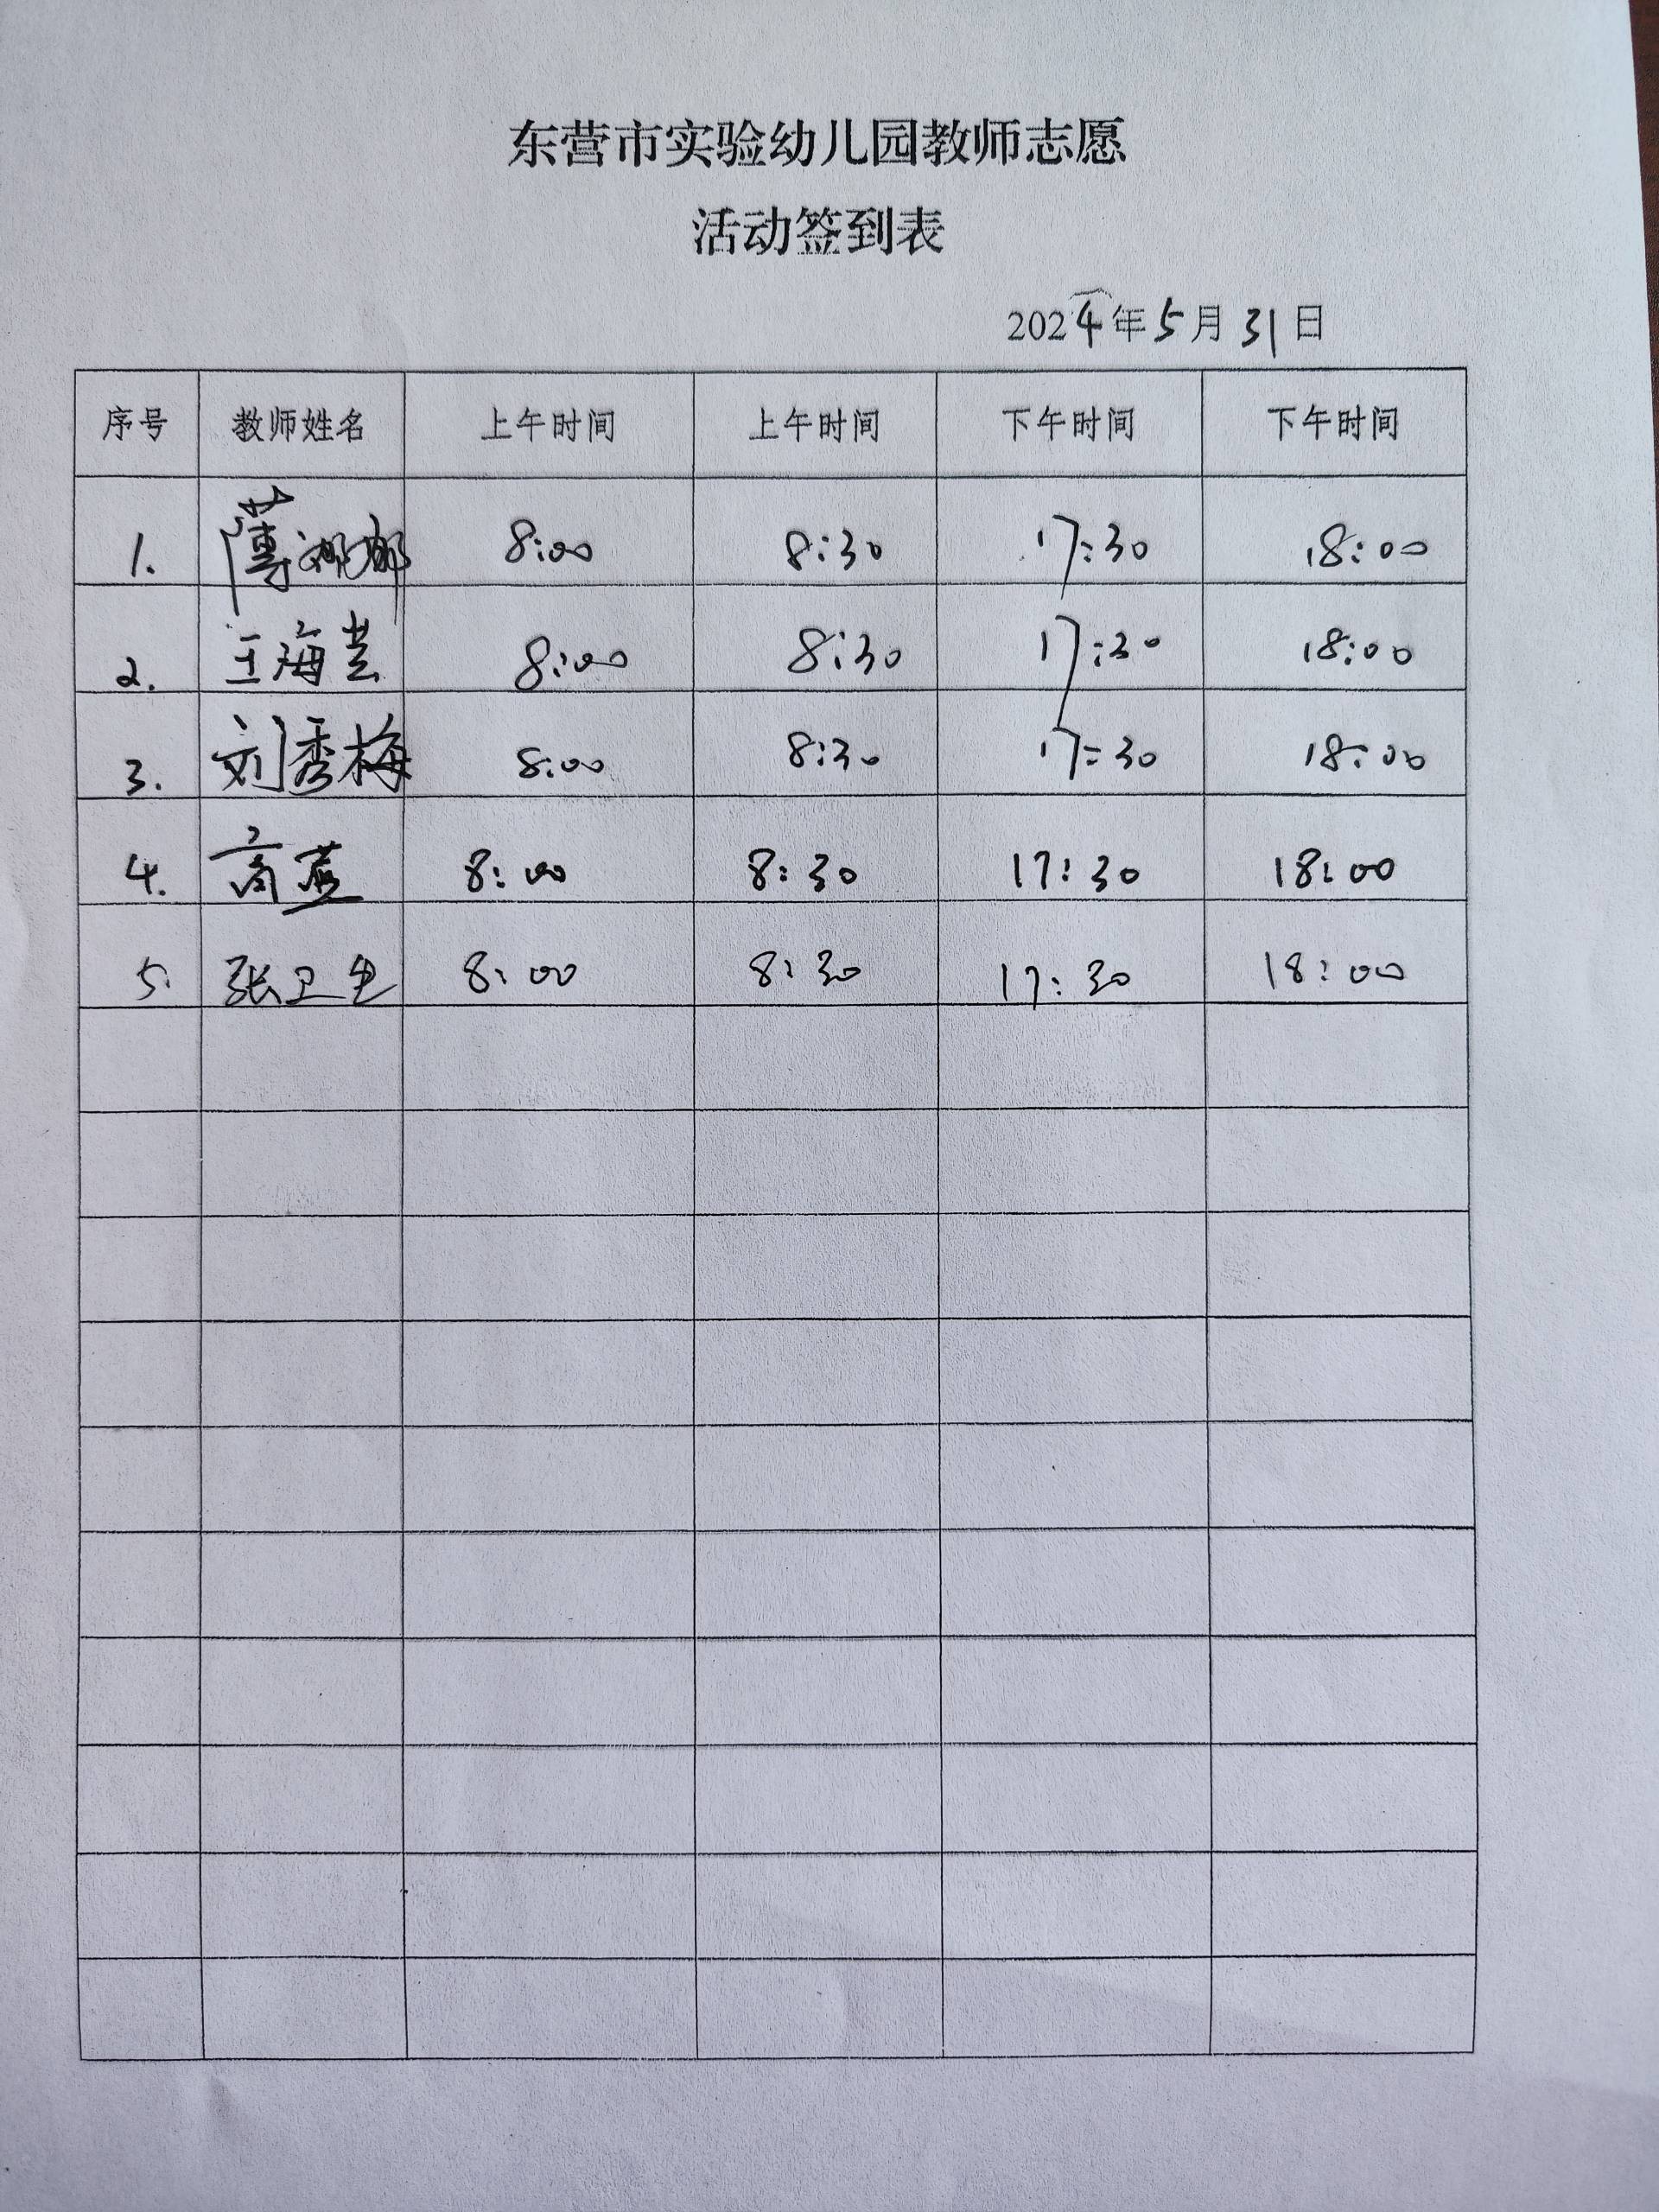 东营市实验幼儿园教师志愿
活动签到表
2024年5月31日
序号 教师姓名 上午时间 上午时间 下午时间 下午时间
1. 8:00 8:30 17:30 18:00
2. 王海芸 8:00 8:30 17:30 18:00
3. 刘秀梅 8:00 8:30 17:30 18:00
4. 8:00 8:30 17:30 18:00
5. 张卫 8:00 8:30 17:30 18:00